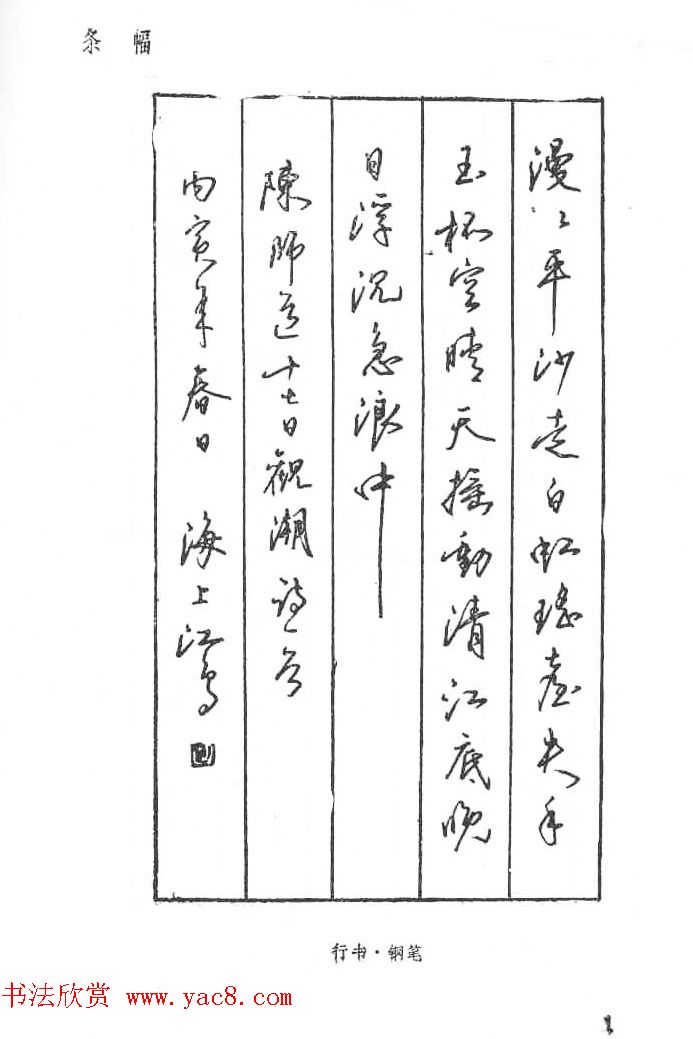 条 幅
漫〻平沙走白虹瑶臺失手
玉杯空晴天摇動清江底晚
日浮沉急浪中
陳師道十七日觀潮詩一首
丙寅年春日 海上江鸟
行书·钢笔
书法欣赏 www.yac8.com